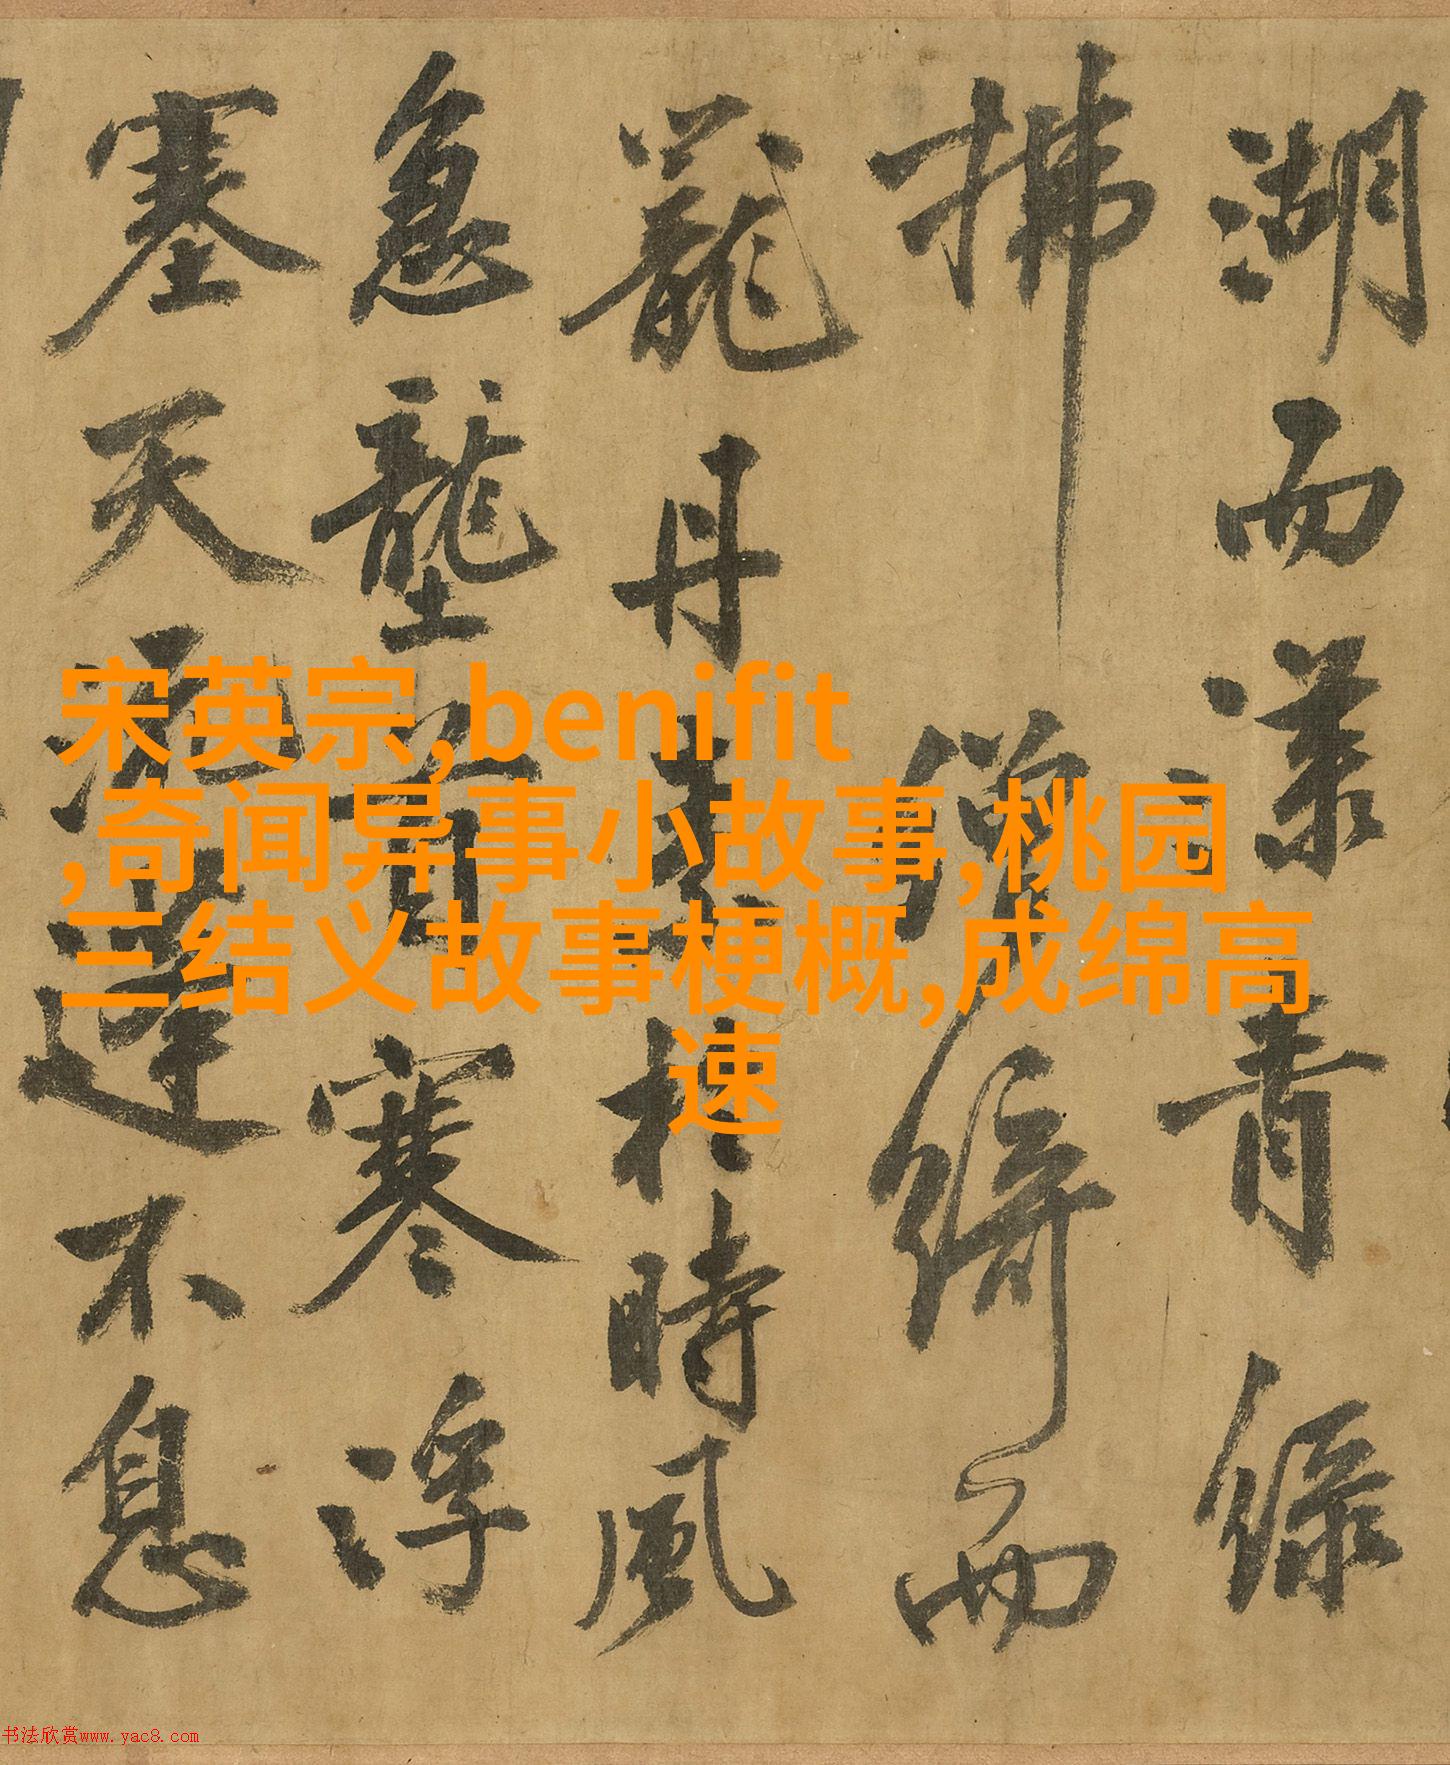 湖而漾青綠
拂繒綺而
籠丹素扵時風
急壟首寒浮
塞天流蓬不息
宋英宗,benifit
,奇闻异事小故事,桃园
三结义故事梗概,成绵高
速
书法欣赏www.yac8.com